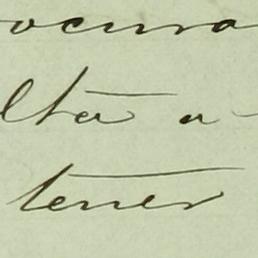 ocura
lta a-
tener